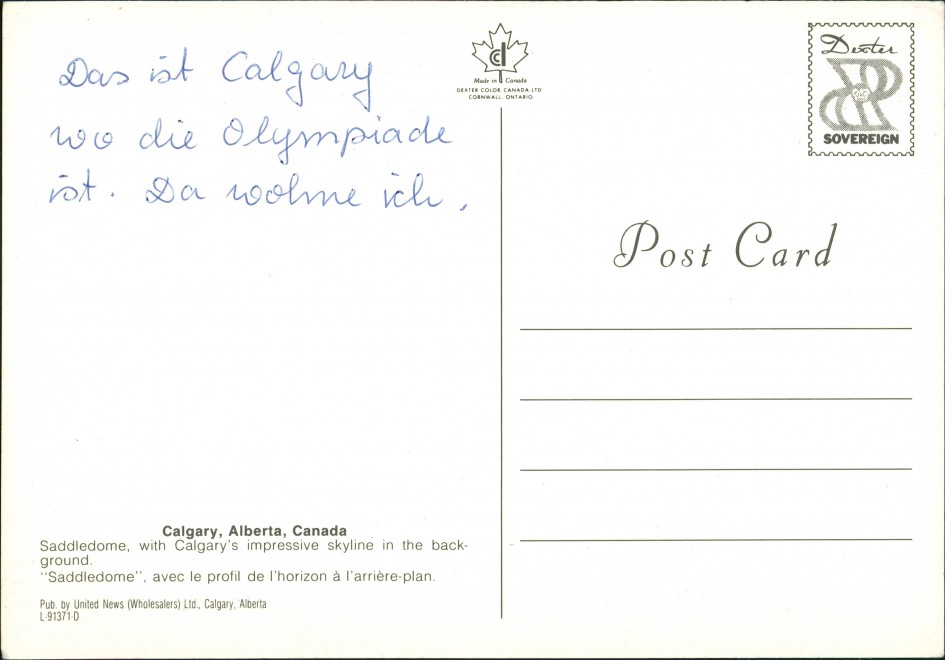 Das ist Calgary
wo die Olympiade
ist. Da wohne ich.
Calgary, Alberta, Canada
Saddledome, with Calgary's impressive skyline in the back-
ground.
"Saddledome", avec le profil de l'horizon à l'arrière-plan.
Pub. by United News (Wholesalers) Ltd., Calgary, Alberta
L-91371-D
Made in Canada
DEXTER COLOR CANADA LTD
CORNWALL, ONTARIO
Dexter
SOVEREIGN
Post Card